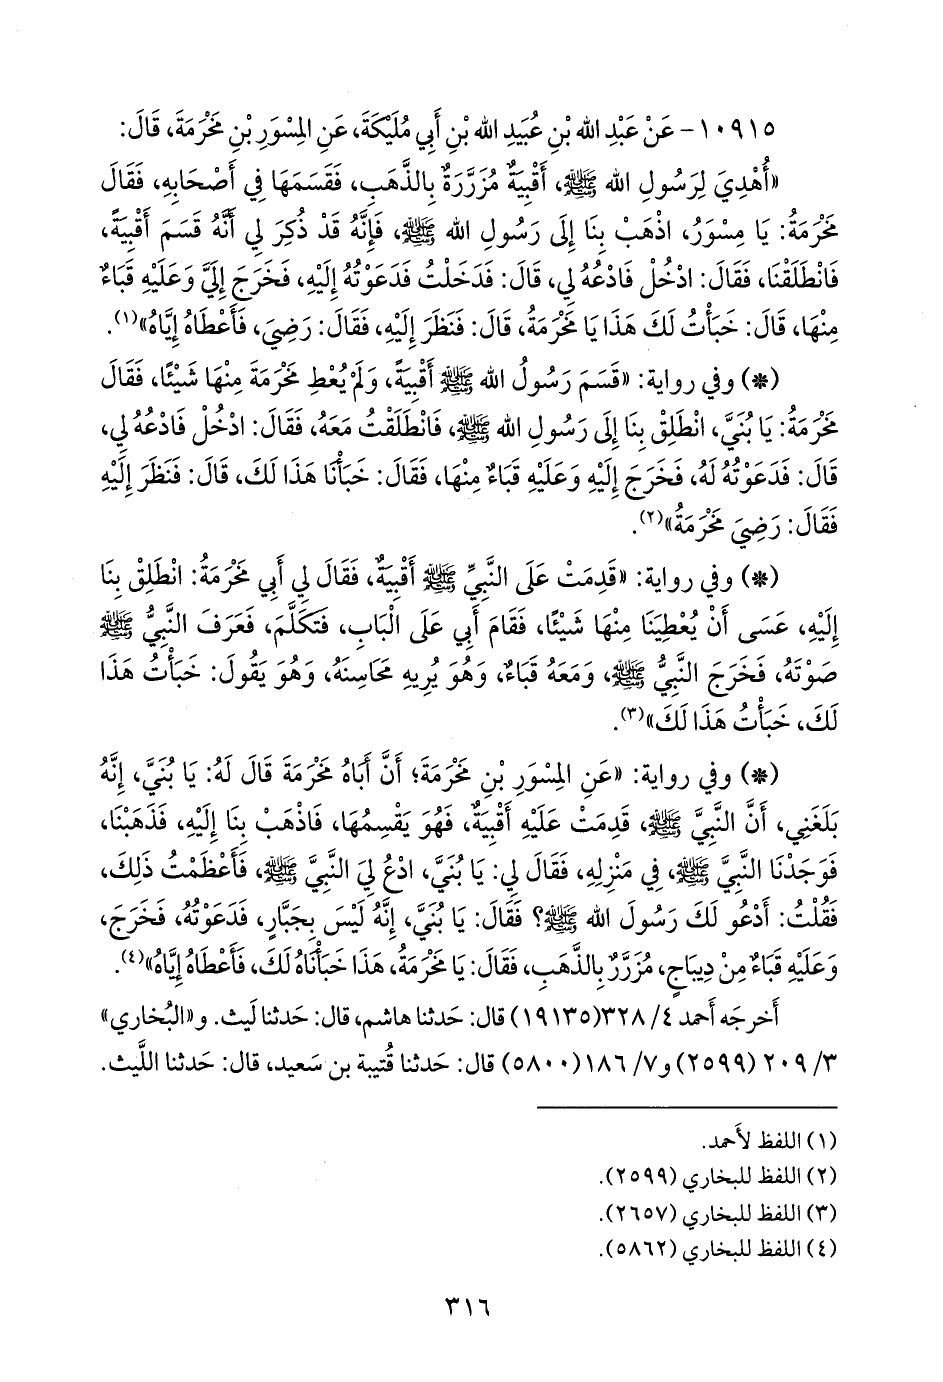 ١٠٩١٥- عَنْ عَبْدِ الله بْنِ عُبَيدِ الله بْنِ أَبِي مُلَيْكَةَ، عَنِ المِسْوَرِ بْنِ مَخْرَمَةَ، قَالَ:
«أُهْدِيَ لِرَسُولِ الله ﷺ، أَقْبِيَةٌ مُزَرَّرَةٌ بِالذَّهَبِ، فَقَسَمَهَا فِي أَصْحَابِهِ، فَقَالَ
مَخْرَمَةُ: يَا مِسْوَرُ، اذْهَبْ بِنَا إِلَى رَسُولِ الله ﷺ، فَإِنَّهُ قَدْ ذُكِرَ لِي أَنَّهُ قَسَمَ أَقْبِيَةً،
فَانْطَلَقْنَا، فَقَالَ: ادْخُلْ فَادْعُهُ لِي، قَالَ: فَدَخَلْتُ فَدَعَوْتُهُ إِلَيْهِ، فَخَرَجَ إِلَيَّ وَعَلَيْهِ قَبَاءٌ
مِنْهَا، قَالَ: خَبَأْتُ لَكَ هَذَا يَا مَخْرَمَةُ، قَالَ: فَنَظَرَ إِلَيْهِ، فَقَالَ: رَضِيَ، فَأَعْطَاهُ إِيَّاهُ»(١).
(*) وفي رواية: «قَسَمَ رَسُولُ الله ﷺ أَقْبِيَةً، وَلَمْ يُعْطِ مَخْرَمَةَ مِنْهَا شَيْئًا، فَقَالَ
مَخْرَمَةُ: يَا بُنَيَّ، انْطَلِقْ بِنَا إِلَى رَسُولِ الله ﷺ، فَانْطَلَقْتُ مَعَهُ، فَقَالَ: ادْخُلْ فَادْعُهُ لِي،
قَالَ: فَدَعَوْتُهُ لَهُ، فَخَرَجَ إِلَيْهِ وَعَلَيْهِ قَبَاءٌ مِنْهَا، فَقَالَ: خَبَأْنَا هَذَا لَكَ، قَالَ: فَنَظَرَ إِلَيْهِ
فَقَالَ: رَضِيَ مَخْرَمَةُ»(٢).
(*) وفي رواية: «قَدِمَتْ عَلَى النَّبِيِّ ﷺ أَقْبِيَةٌ، فَقَالَ لِي أَبِي مَخْرَمَةُ: انْطَلِقْ بِنَا
إِلَيْهِ، عَسَى أَنْ يُعْطِيَنَا مِنْهَا شَيْئًا، فَقَامَ أَبِي عَلَى الْبَابِ، فَتَكَلَّمَ، فَعَرَفَ النَّبِيُّ ﷺ
صَوْتَهُ، فَخَرَجَ النَّبِيُّ ﷺ، وَمَعَهُ قَبَاءٌ، وَهُوَ يُرِيهِ مَحَاسِنَهُ، وَهُوَ يَقُولُ: خَبَأْتُ هَذَا
لَكَ، خَبَأْتُ هَذَا لَكَ»(٣).
(*) وفي رواية: «عَنِ المِسْوَرِ بْنِ مَخْرَمَةَ؛ أَنَّ أَبَاهُ مَخْرَمَةَ قَالَ لَهُ: يَا بُنَيَّ، إِنَّهُ
بَلَغَنِي، أَنَّ النَّبِيَّ ﷺ، قَدِمَتْ عَلَيْهِ أَقْبِيَةٌ، فَهُوَ يَقْسِمُهَا، فَاذْهَبْ بِنَا إِلَيْهِ، فَذَهَبْنَا،
فَوَجَدْنَا النَّبِيَّ ﷺ، فِي مَنْزِلِهِ، فَقَالَ لِي: يَا بُنَيَّ، ادْعُ لِيَ النَّبِيَّ ﷺ، فَأَعْظَمْتُ ذَلِكَ،
فَقُلْتُ: أَدْعُو لَكَ رَسُولَ الله ﷺ؟ فَقَالَ: يَا بُنَيَّ، إِنَّهُ لَيْسَ بِجَبَّارٍ، فَدَعَوْتُهُ، فَخَرَجَ،
وَعَلَيْهِ قَبَاءٌ مِنْ دِيبَاجٍ، مُزَرَّرٌ بِالذَّهَبِ، فَقَالَ: يَا مَخْرَمَةُ، هَذَا خَبَأْنَاهُ لَكَ، فَأَعْطَاهُ إِيَّاهُ»(٤).
أَخرجَه أَحمد ٤/ ٣٢٨(١٩١٣٥) قال: حَدثنا هاشم، قال: حَدثنا لَيث. و«البُخاري»
٣/ ٢٠٩ (٢٥٩٩) و٧/ ١٨٦(٥٨٠٠) قال: حَدثنا قُتيبة بن سَعيد، قال: حَدثنا اللَّيث.
(١) اللفظ لأَحمد.
(٢) اللفظ للبخاري (٢٥٩٩).
(٣) اللفظ للبخاري (٢٦٥٧).
(٤) اللفظ للبخاري (٥٨٦٢).
٣١٦